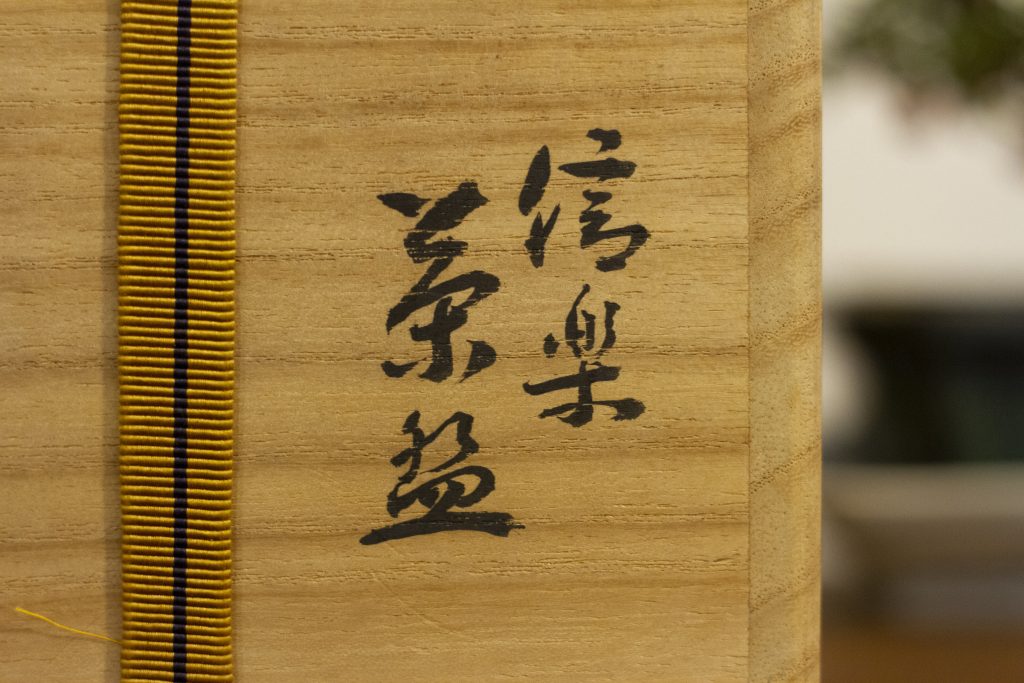 信楽
茶盌